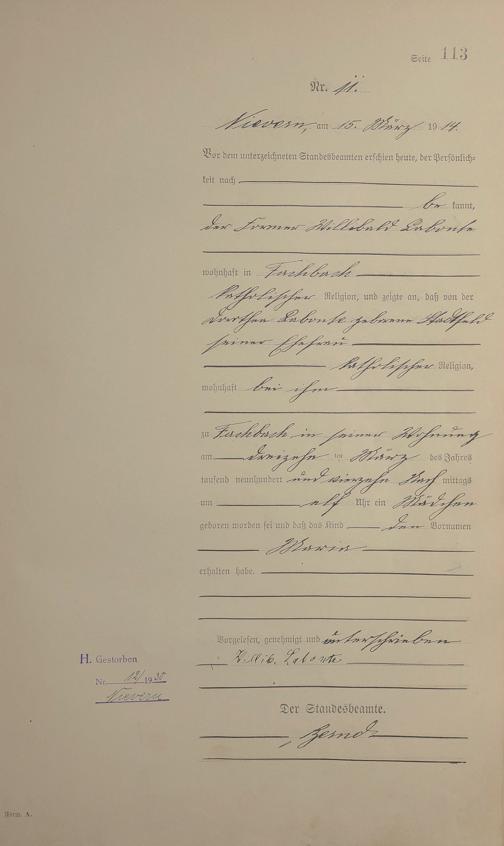 Seite 113
Nr. 11.
Nievern, am 15. März 1914.
Vor dem unterzeichneten Standesbeamten erschien heute, der Persönlich-
keit nach
be kannt,
der Former Willibald Labonte
wohnhaft in Fachbach
katholischer Religion, und zeigte an, daß von der
Dorothea Labonte geborene Stadtfeld
seiner Ehefrau
katholischer Religion,
wohnhaft bei ihm
zu Fachbach in seiner Wohnung
am dreizehn ten März des Jahres
tausend neunhundert und vierzehn Nach mittags
um elf Uhr ein Mädchen
geboren worden sei und daß das Kind den Vornamen
Maria
erhalten habe.
Vorgelesen, genehmigt und unterschrieben
Willib. Labonte
H. Gestorben
Nr. 12/1938
Nievern
Der Standesbeamte.
Form. A.